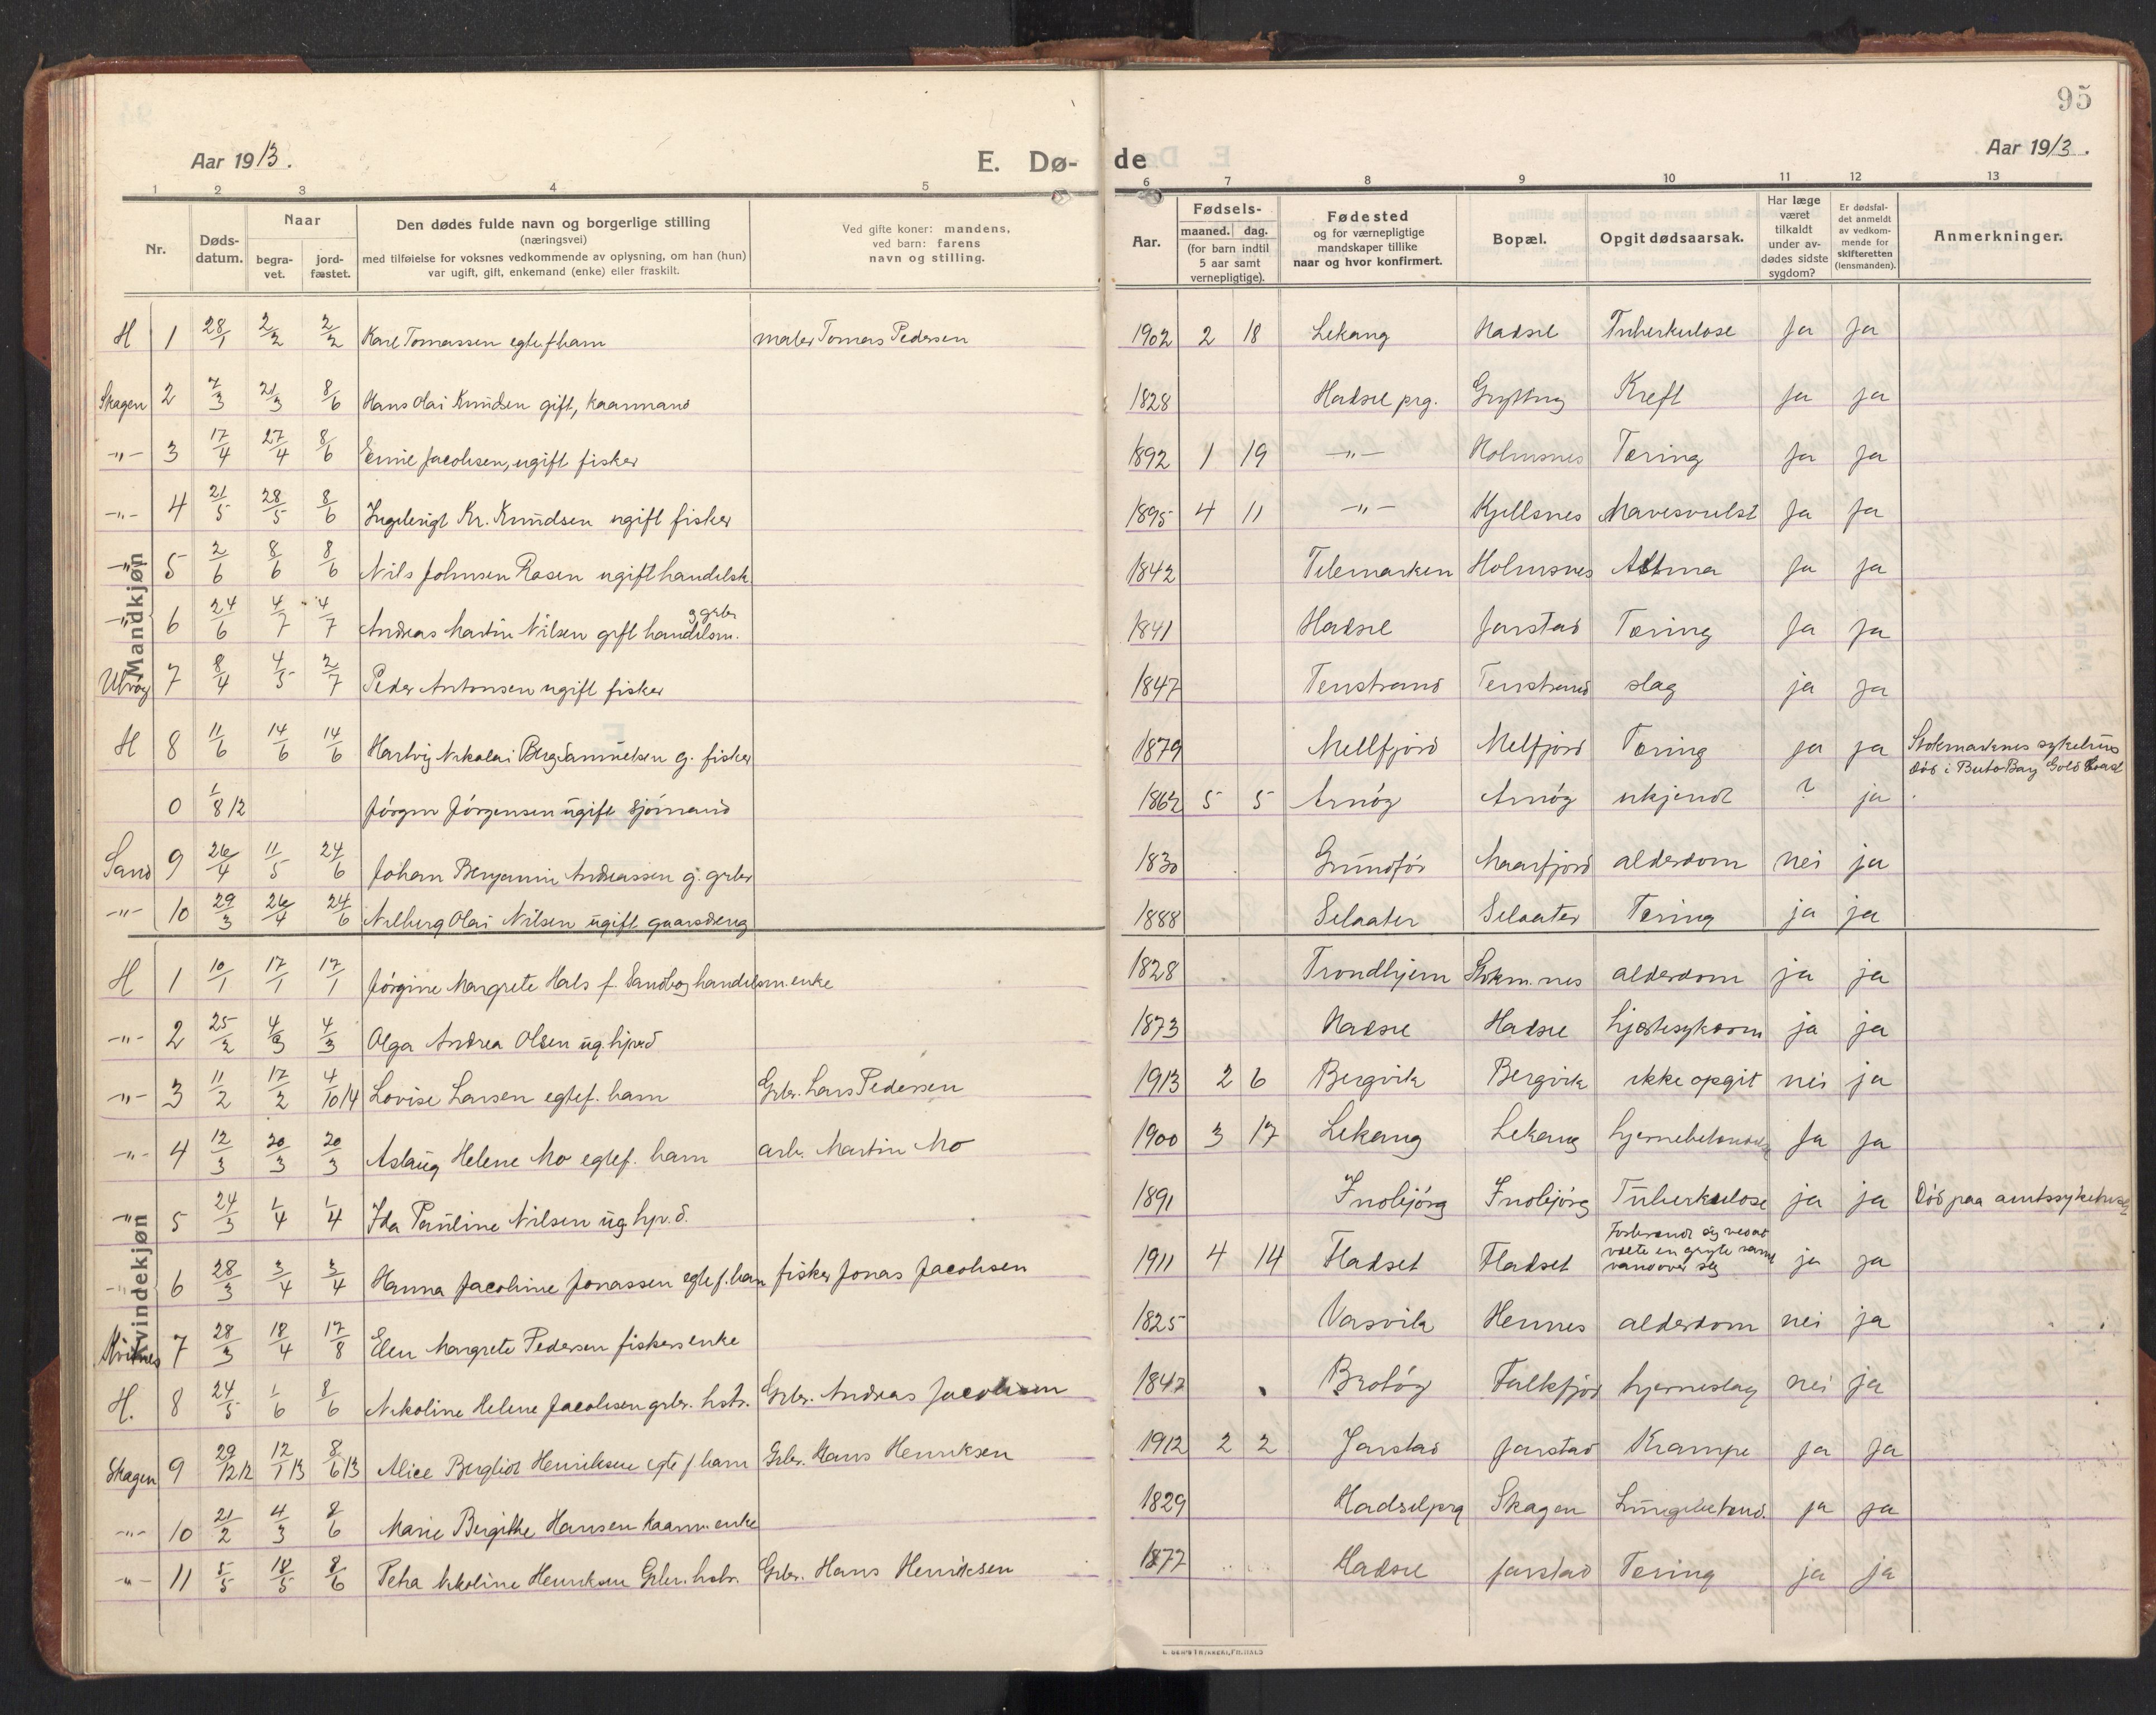 95
Aar 1913.
E. Dø-
de
Aar 1913.
1 2 3 4 5 6 7 8 9 10 11 12 13
Nr.
Døds-
datum.
Naar
begra-
vet.
jord-
fæstet.
Den dødes fulde navn og borgerlige stilling
(næringsvei)
med tilføielse for voksnes vedkommende av oplysning, om han (hun)
var ugift, gift, enkemand (enke) eller fraskilt.
Ved gifte koner: mandens,
ved barn: farens
navn og stilling.
Aar.
Fødsels-
maaned. dag.
(for barn indtil
5 aar samt
vernepligtige).
Fødested
og for værnepligtige
mandskaper tillike
naar og hvor konfirmert.
Bopæl.
Opgit dødsaarsak.
Har læge
været
tilkaldt
under av-
dødes sidste
sygdom?
Er dødsfal-
det anmeldt
av vedkom-
mende for
skifteretten
(lensmanden).
Anmerkninger.
Mandkjøn
H 1 28/1 2/2 2/2 Karl Tomassen egtef barn maler Tomas Pedersen 1902 2 18 Lekang Hadsel Tuberkulose Ja Ja
Skagen 2 7/3 21/3 8/6 Hans Olai Knudsen gift, kaarmand 1828 Hadsel prg. Grytting Kreft Ja Ja
-"- 3 17/4 27/4 8/6 Emil Jacobsen, ugift fisker 1892 1 19 -"- Holmsnes Tæring Ja Ja
-"- 4 21/5 28/5 8/6 Ingebrigt Kr. Knudsen ugift fisker 1895 4 11 -"- Kjellsnes Mavesvulst Ja Ja
-"- 5 2/6 8/6 8/6 Nils Johnsen Rosen ugift handelsk. 1842 Telemarken Holmsnes Astma Ja Ja
-"- 6 24/6 4/7 4/7 Andreas Martin Nilsen gift handelsm. g grbr 1841 Hadsel Jarstad Tæring Ja Ja
Ulvøy 7 8/4 4/5 2/7 Peder Antonsen ugift fisker 1847 Tenstrand Tenstrand slag ja ja
H 8 11/6 14/6 14/6 Hartvig Nikolai Berg Samuelsen g. fisker 1879 Mellfjord Melfjord Tæring ja ja Stokmarknes sykehus
0 1/8 12 Jörgen Jörgensen ugift sjömand 1862 5 5 Arnöy Arnöy ukjendt ? ja död i Buto Bay Gold Coast
Sand 9 26/4 11/5 24/6 Johan Benjamin Andreassen g. grbr 1830 Grundför Maarfjord alderdom nei ja
-"- 10 29/3 26/4 24/6 Nilberg Olai Nilsen ugift gaardsdreng 1888 Selaater Selaater Tæring ja ja
Kvindekjøn
H 1 10/1 17/1 17/1 Jörgine Margrete Hals f. Sandbog handelsm. enke 1828 Trondhjem Stokm.nes alderdom ja ja
-"- 2 25/2 4/3 4/3 Olga Andrea Olsen ug. hjv. d 1873 Hadsel Hadsel hjertesykdom ja ja
-"- 3 11/2 17/2 4/10 14 Lovise Larsen egtef. barn Grbr. Lars Pedersen 1913 2 6 Bergvik Bergvik ikke opgit nei ja
-"- 4 12/3 20/3 20/3 Aslaug Helene Mo egtef. barn arb. Martin Mo 1900 3 17 Lekang Lekang hjernebetændelse Ja Ja
-"- 5 24/3 1/4 1/4 Ida Pauline Nilsen ug hjv. d. 1891 Innbjörg Innbjörg Tuberkulose ja ja Död paa amtssykehuset
-"- 6 28/3 3/4 3/4 Hanna Jacobine Jonassen egtef. barn fisker Jonas Jacobsen 1911 4 14 Fladset Fladset Forbrændt sig ved at vælte en gryte varmt vand over sig ja ja
Kvitnes 7 28/3 18/4 17/8 Elen Margrete Pedersen fiskers enke 1825 Vasvik Hennes alderdom nei ja
H. 8 24/5 1/6 8/6 Nikoline Helene Jacobsen grbr. hstr. Grbr. Andreas Jacobsen 1847 Brotöy Falkfjord hjerneslag nei ja
Skagen 9 29/12 12 12/1 13 8/6 13 Alice Bergliot Henriksen egtef barn Grbr. Hans Henriksen 1912 2 2 Jarstad Jarstad Krampe Ja Ja
-"- 10 21/2 4/3 8/6 Marie Bergithe Hansen kaarm. enke 1829 Hadselprg Skagen Lungebetænd. ja ja
-"- 11 5/5 18/5 8/6 Petra Nikoline Henriksen Grbr. hstr. Grbr. Hans Henriksen 1877 Hadsel Jarstad Tæring ja ja